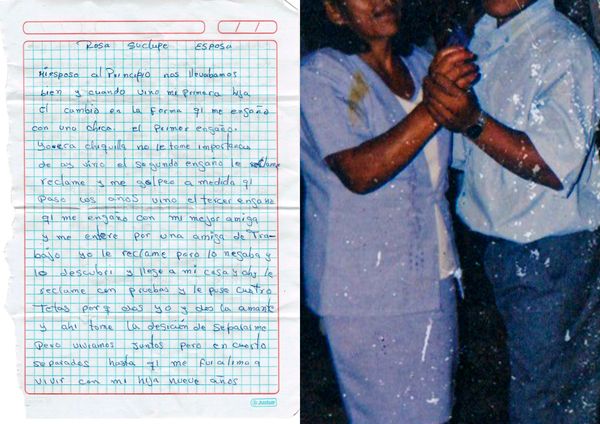 Rosa Suclupe Esposa
Miesposo al Principio nos llevabamos
bien y cuando vino me primera hija
El cambió en la forma qi me engaño
con una chica. el primer engaño.
Yo era chiquilla no le tome importancia
de ay vino el segundo engaño le
reclame y me golpeo a medida qi
paso los años vino el tercer engaño
qi me engano con mi mejor amiga
y me entere por una amiga de Tra-
bajo yo le reclame paro lo negaba y
lo descubri y llege a mi casa y ahy le
reclame con pruebas y le puse cuatro
Tetas por q dos yo y dos la amante
y ahi tome la desición de separarme
pero viviamos juntos pero en cuarto
separados hasta qi me fui a lima a
vivir con mi hija nueve años
Justus